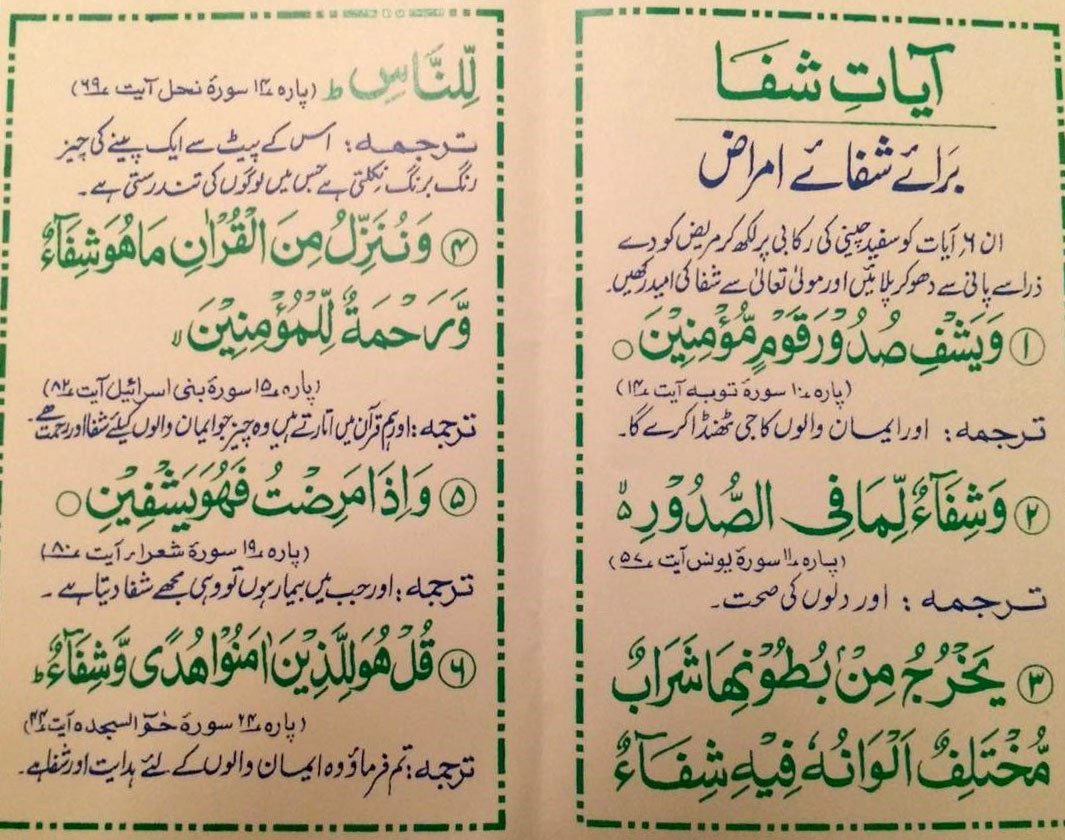 آیاتِ شفا
بَرائے شفائے امراض
ان ۶ آیات کو سفید چینی کی رکابی پر لکھ کر مریض کو دے
ذرا سے پانی سے دھو کر پلائیں اور مولیٰ تعالیٰ سے شفا کی امید رکھیں۔
۱ وَيَشْفِ صُدُوْرَ قَوْمٍ مُّؤْمِنِيْنَ ○
(پارہ ۱۰ سورۃ توبہ آیت ۱۴)
ترجمہ: اور ایمان والوں کا جی ٹھنڈا کرے گا۔
۲ وَشِفَآءٌ لِّمَا فِی الصُّدُوْرِ ۙ
(پارہ ۱۱ سورۃ یونس آیت ۵۷)
ترجمہ: اور دلوں کی صحت۔
۳ يَخْرُجُ مِنْۢ بُطُوْنِهَا شَرَابٌ
مُّخْتَلِفٌ اَلْوَانُهٗ فِيْهِ شِفَآءٌ
لِّلنَّاسِ ؕ (پارہ ۱۴ سورۃ نحل آیت ۶۹)
ترجمہ: اس کے پیٹ سے ایک پینے کی چیز
رنگ برنگ نکلتی ہے جس میں لوگوں کی تندرستی ہے۔
۴ وَنُنَزِّلُ مِنَ الْقُرْاٰنِ مَا هُوَ شِفَآءٌ
وَّرَحْمَةٌ لِّلْمُؤْمِنِيْنَ ۙ
(پارہ ۱۵ سورۃ بنی اسرائیل آیت ۸۲)
ترجمہ: اور ہم قرآن میں اتارتے ہیں وہ چیز جو ایمان والوں کیلئے شفا اور رحمت ہے۔
۵ وَاِذَا مَرِضْتُ فَهُوَ يَشْفِيْنِ ○
(پارہ ۱۹ سورۃ شعراء آیت ۸۰)
ترجمہ: اور جب میں بیمار ہوں تو وہی مجھے شفا دیتا ہے۔
۶ قُلْ هُوَ لِلَّذِيْنَ اٰمَنُوْا هُدًى وَّشِفَآءٌ ؕ
(پارہ ۲۴ سورۃ حٰمٓ السجدہ آیت ۴۴)
ترجمہ: تم فرماؤ وہ ایمان والوں کے لئے ہدایت اور شفا ہے۔